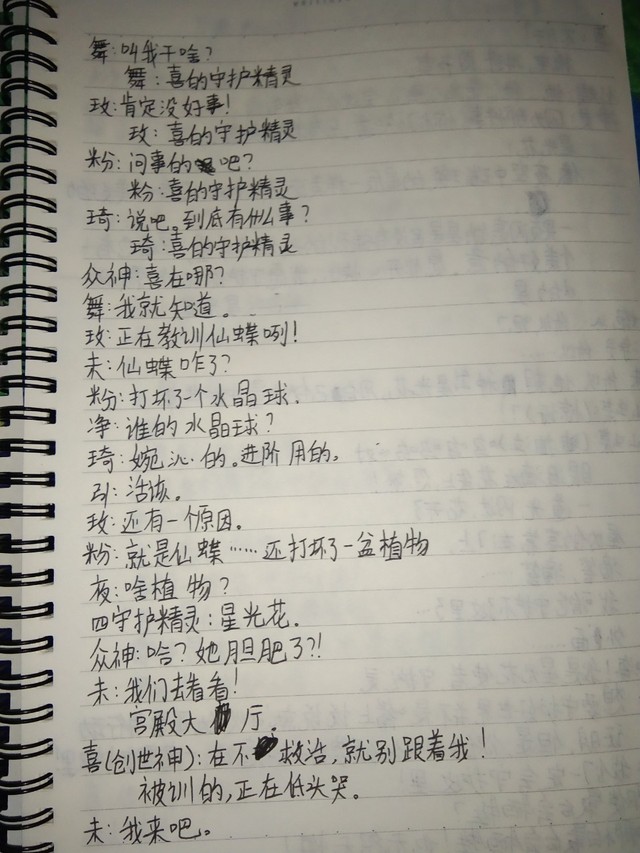 舞:叫我干啥?
舞:喜的守护精灵
玫:肯定没好事!
玫:喜的守护精灵
粉:问事的吧?
粉:喜的守护精灵
琦:说吧。到底有什么事?
琦:喜的守护精灵
众神:喜在哪?
舞:我就知道。
玫:正在教训仙蝶咧!
未:仙蝶咋了?
粉:打坏了一个水晶球.
净:谁的水晶球?
琦:婉沁的。进阶用的。
引:活该。
玫:还有一个原因。
粉:就是仙蝶……还打坏了一盆植物
夜:啥植物?
四守护精灵:星光花.
众神:啥?她胆肥了?!
未:我们去看看!
宫殿大厅.
喜(创世神):在不救治,就别跟着我!
被训的,正在低头哭。
未:我来吧。